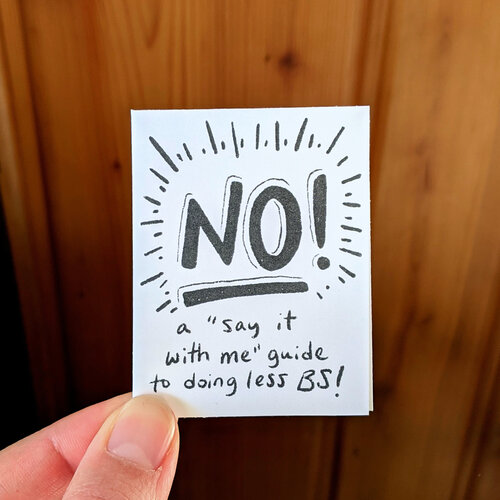 NO!
a "say it
with me" guide
to doing less BS!